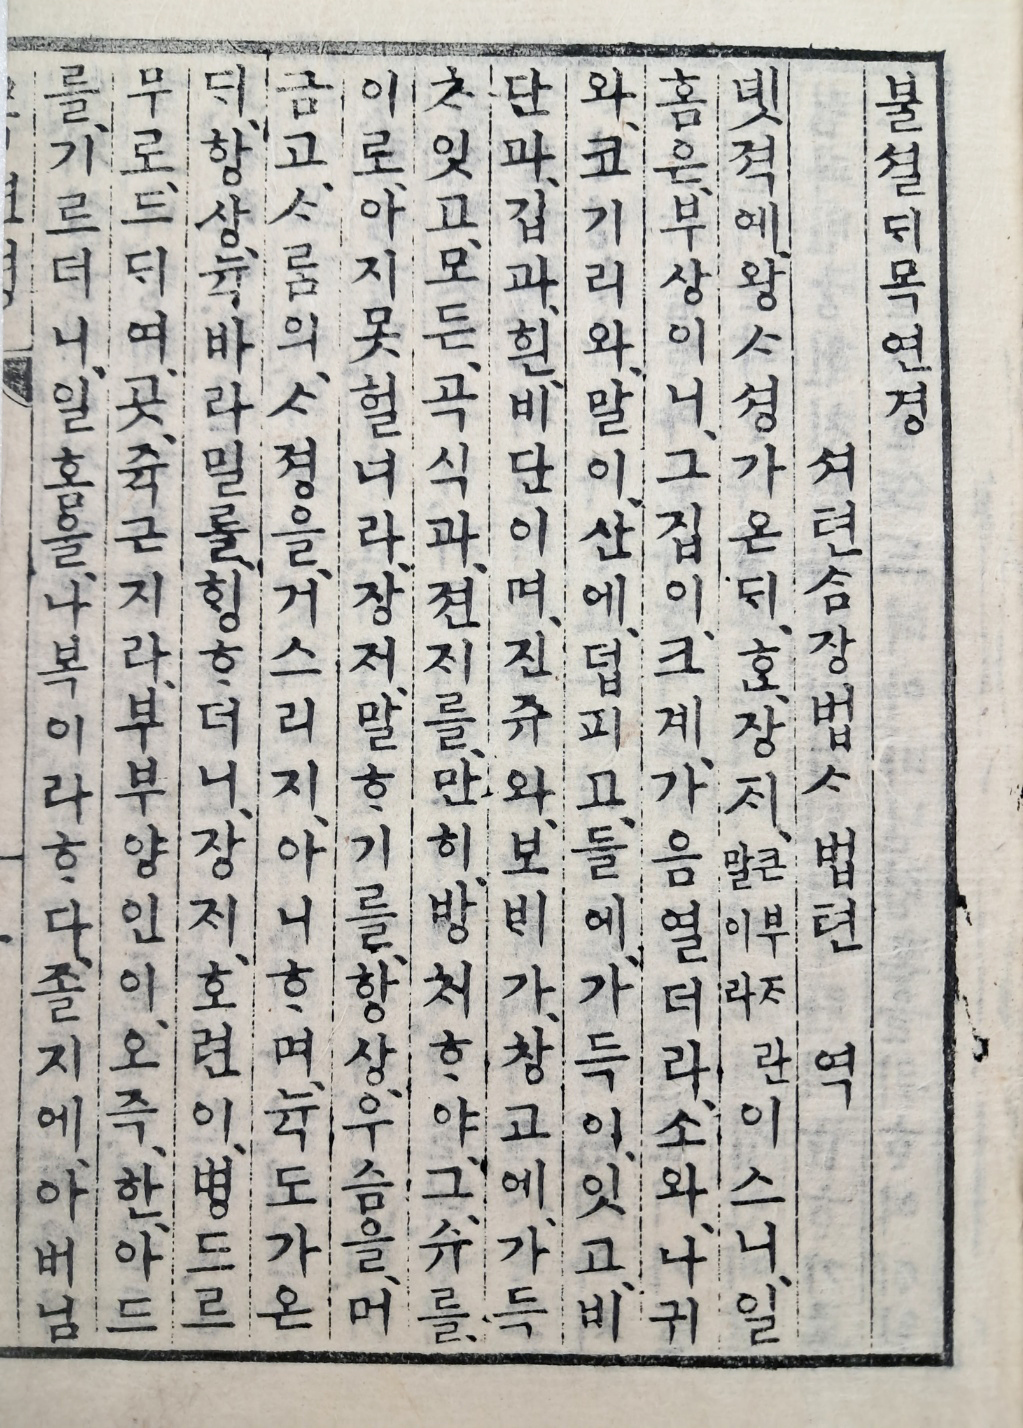 불셜ᄃᆡ목연경
셔텬삼장법ᄉ 법텬 역
녯젹에、왕ᄉ셩가온ᄃᆡ、ᄒᆞᆫ、장ᄌᆡ、큰부ᄌ말이라 란이스니、일
홈은、부상이니、그집이、크계、가음열더라、소와、나귀
와、코기리와、말이、산에、덥피고、들에、가득이、잇고、비
단과、깁과、흰、비단이며、진쥬와、보비가、창고에、가득
ᄎ잇고、모든、곡식과、젼지를、만히、방쳐ᄒᆞ야、그、슈를、
이로、아지못헐너라、장ᄌᆡ、말ᄒᆞ기를、항상、우슴을、머
금고、ᄉᄅᆞᆷ의、ᄉ졍을、거스리지、아니ᄒᆞ며、륙도가온
ᄃᆡ、항상、륙바라밀를、ᄒᆡᆼᄒᆞ더니、장ᄌᆡ、호련이、병드르
무로、드ᄃᆡ여、곳、쥭근지라、부부양인이、오즉、한、아드
를、기르더니、일홈을、나복이라ᄒᆞ다、졸지에、아버님